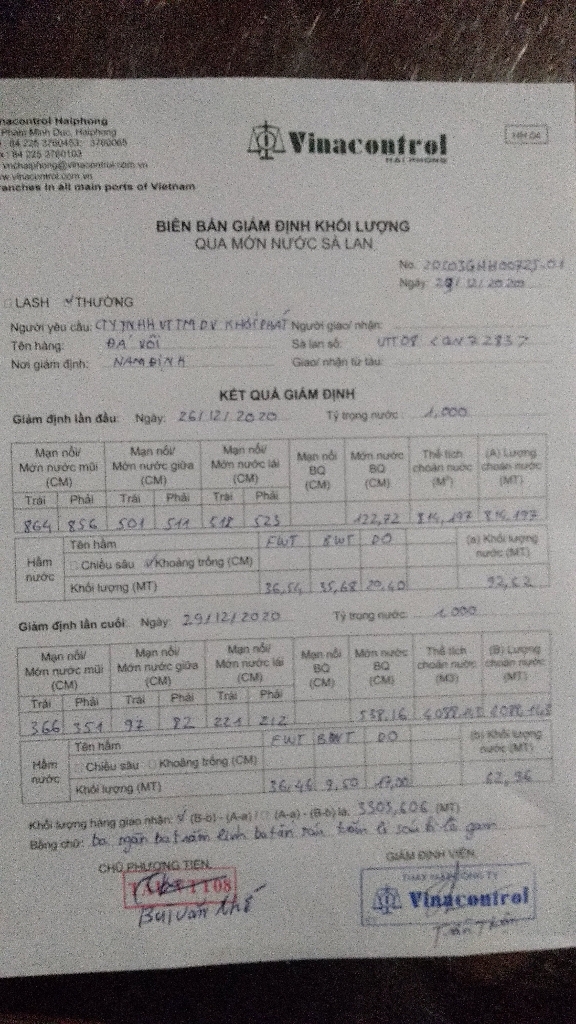 nacontrol Haiphong
Pham Minh Duc, Haiphong
: 84 225 3760453; 3760065
x : 84 225 3760103
vnchaiphong@vinacontrol.com.vn
w.vinacontrol.com.vn
anches in all main ports of Vietnam
Vinacontrol
HAI PHONG
HH 04
BIÊN BẢN GIÁM ĐỊNH KHỐI LƯỢNG
QUA MỚN NƯỚC SÀ LAN
No. 20G03GHH00725-01
Ngày: 29/12/2020
LASH THƯỜNG
Người yêu cầu: CTY TNHH VT TM DV KHÔI PHÁT Người giao/ nhận:
Tên hàng: ĐÁ VÔI Sà lan số: UTT08
Nơi giám định: NAM ĐỊNH Giao/ nhận từ tàu:
KẾT QUẢ GIÁM ĐỊNH
Giám định lần đầu: Ngày: 26/12/2020 Tỷ trọng nước: 1,000
Mạn nổi/ Mớn nước mũi (CM) Mạn nổi/ Mớn nước giữa (CM) Mạn nổi/ Mớn nước lái (CM) Mạn nổi BQ (CM) Mớn nước BQ (CM) Thể tích choán nước (M³) (A) Lượng choán nước (MT)
Trái Phải Trái Phải Trái Phải
864 856 501 511 518 523 122,72 814,197 814,197
Hầm nước Tên hầm FWT BWT DO (a) Khối lượng nước (MT)
Chiều sâu Khoảng trống (CM)
Khối lượng (MT) 36,54 35,68 20,40 92,62
Giám định lần cuối: Ngày: 29/12/2020 Tỷ trọng nước: 1,000
Mạn nổi/ Mớn nước mũi (CM) Mạn nổi/ Mớn nước giữa (CM) Mạn nổi/ Mớn nước lái (CM) Mạn nổi BQ (CM) Mớn nước BQ (CM) Thể tích choán nước (M3) (B) Lượng choán nước (MT)
Trái Phải Trái Phải Trái Phải
366 351 97 82 221 212 538,16 4088,143
Hầm nước Tên hầm FWT BWT DO (b) Khối lượng nước (MT)
Chiều sâu Khoảng trống (CM)
Khối lượng (MT) 36,46 9,50 17,00 62,96
Khối lượng hàng giao nhận: (B-b) - (A-a) / (A-a) - (B-b) là: 3303,606 (MT)
Bằng chữ: ba ngàn ba trăm linh ba tấn sáu trăm lẻ sáu
CHỦ PHƯƠNG TIỆN GIÁM ĐỊNH VIÊN
Bùi Văn Thế
Vinacontrol